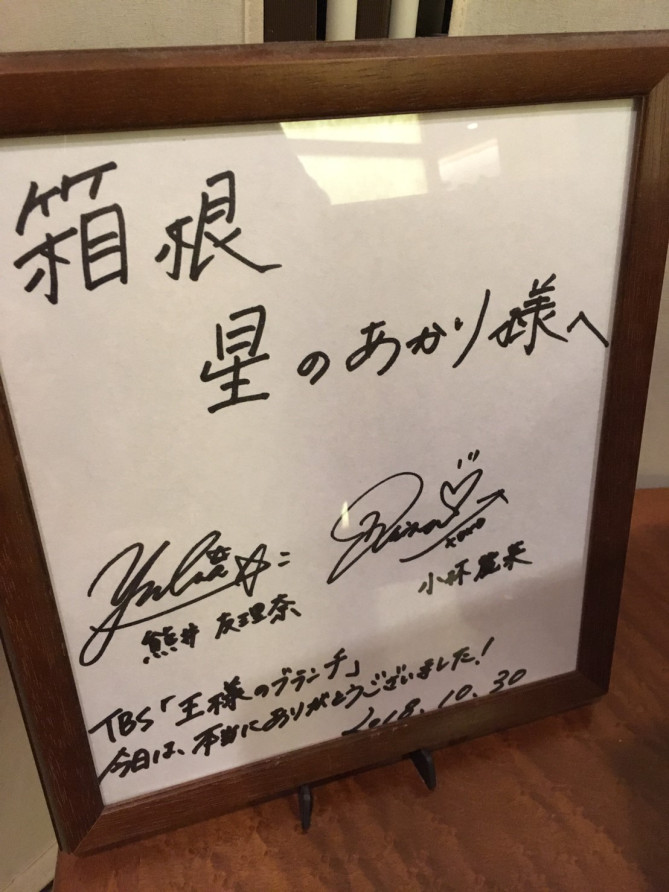 箱根
星のあかり様へ
xoxo
熊井 友理奈
小林麗菜
TBS「王様のブランチ」
今日は、本当にありがとうございました!
2018.10.30